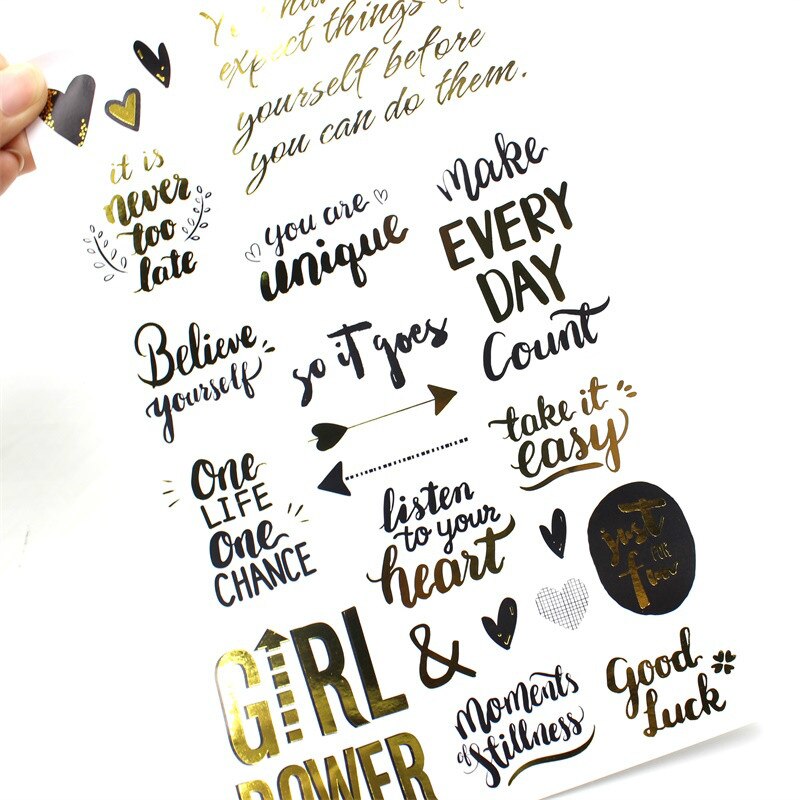 expect things of
yourself before
you can do them.
it is
never
too
late
you are
unique
make
EVERY
DAY
Count
Believe
yourself
so it goes
take it
easy
One
LIFE
One
CHANCE
listen
to your
heart
just
for
fun
GIRL
POWER
&
Moments
of Stillness
Good
Luck